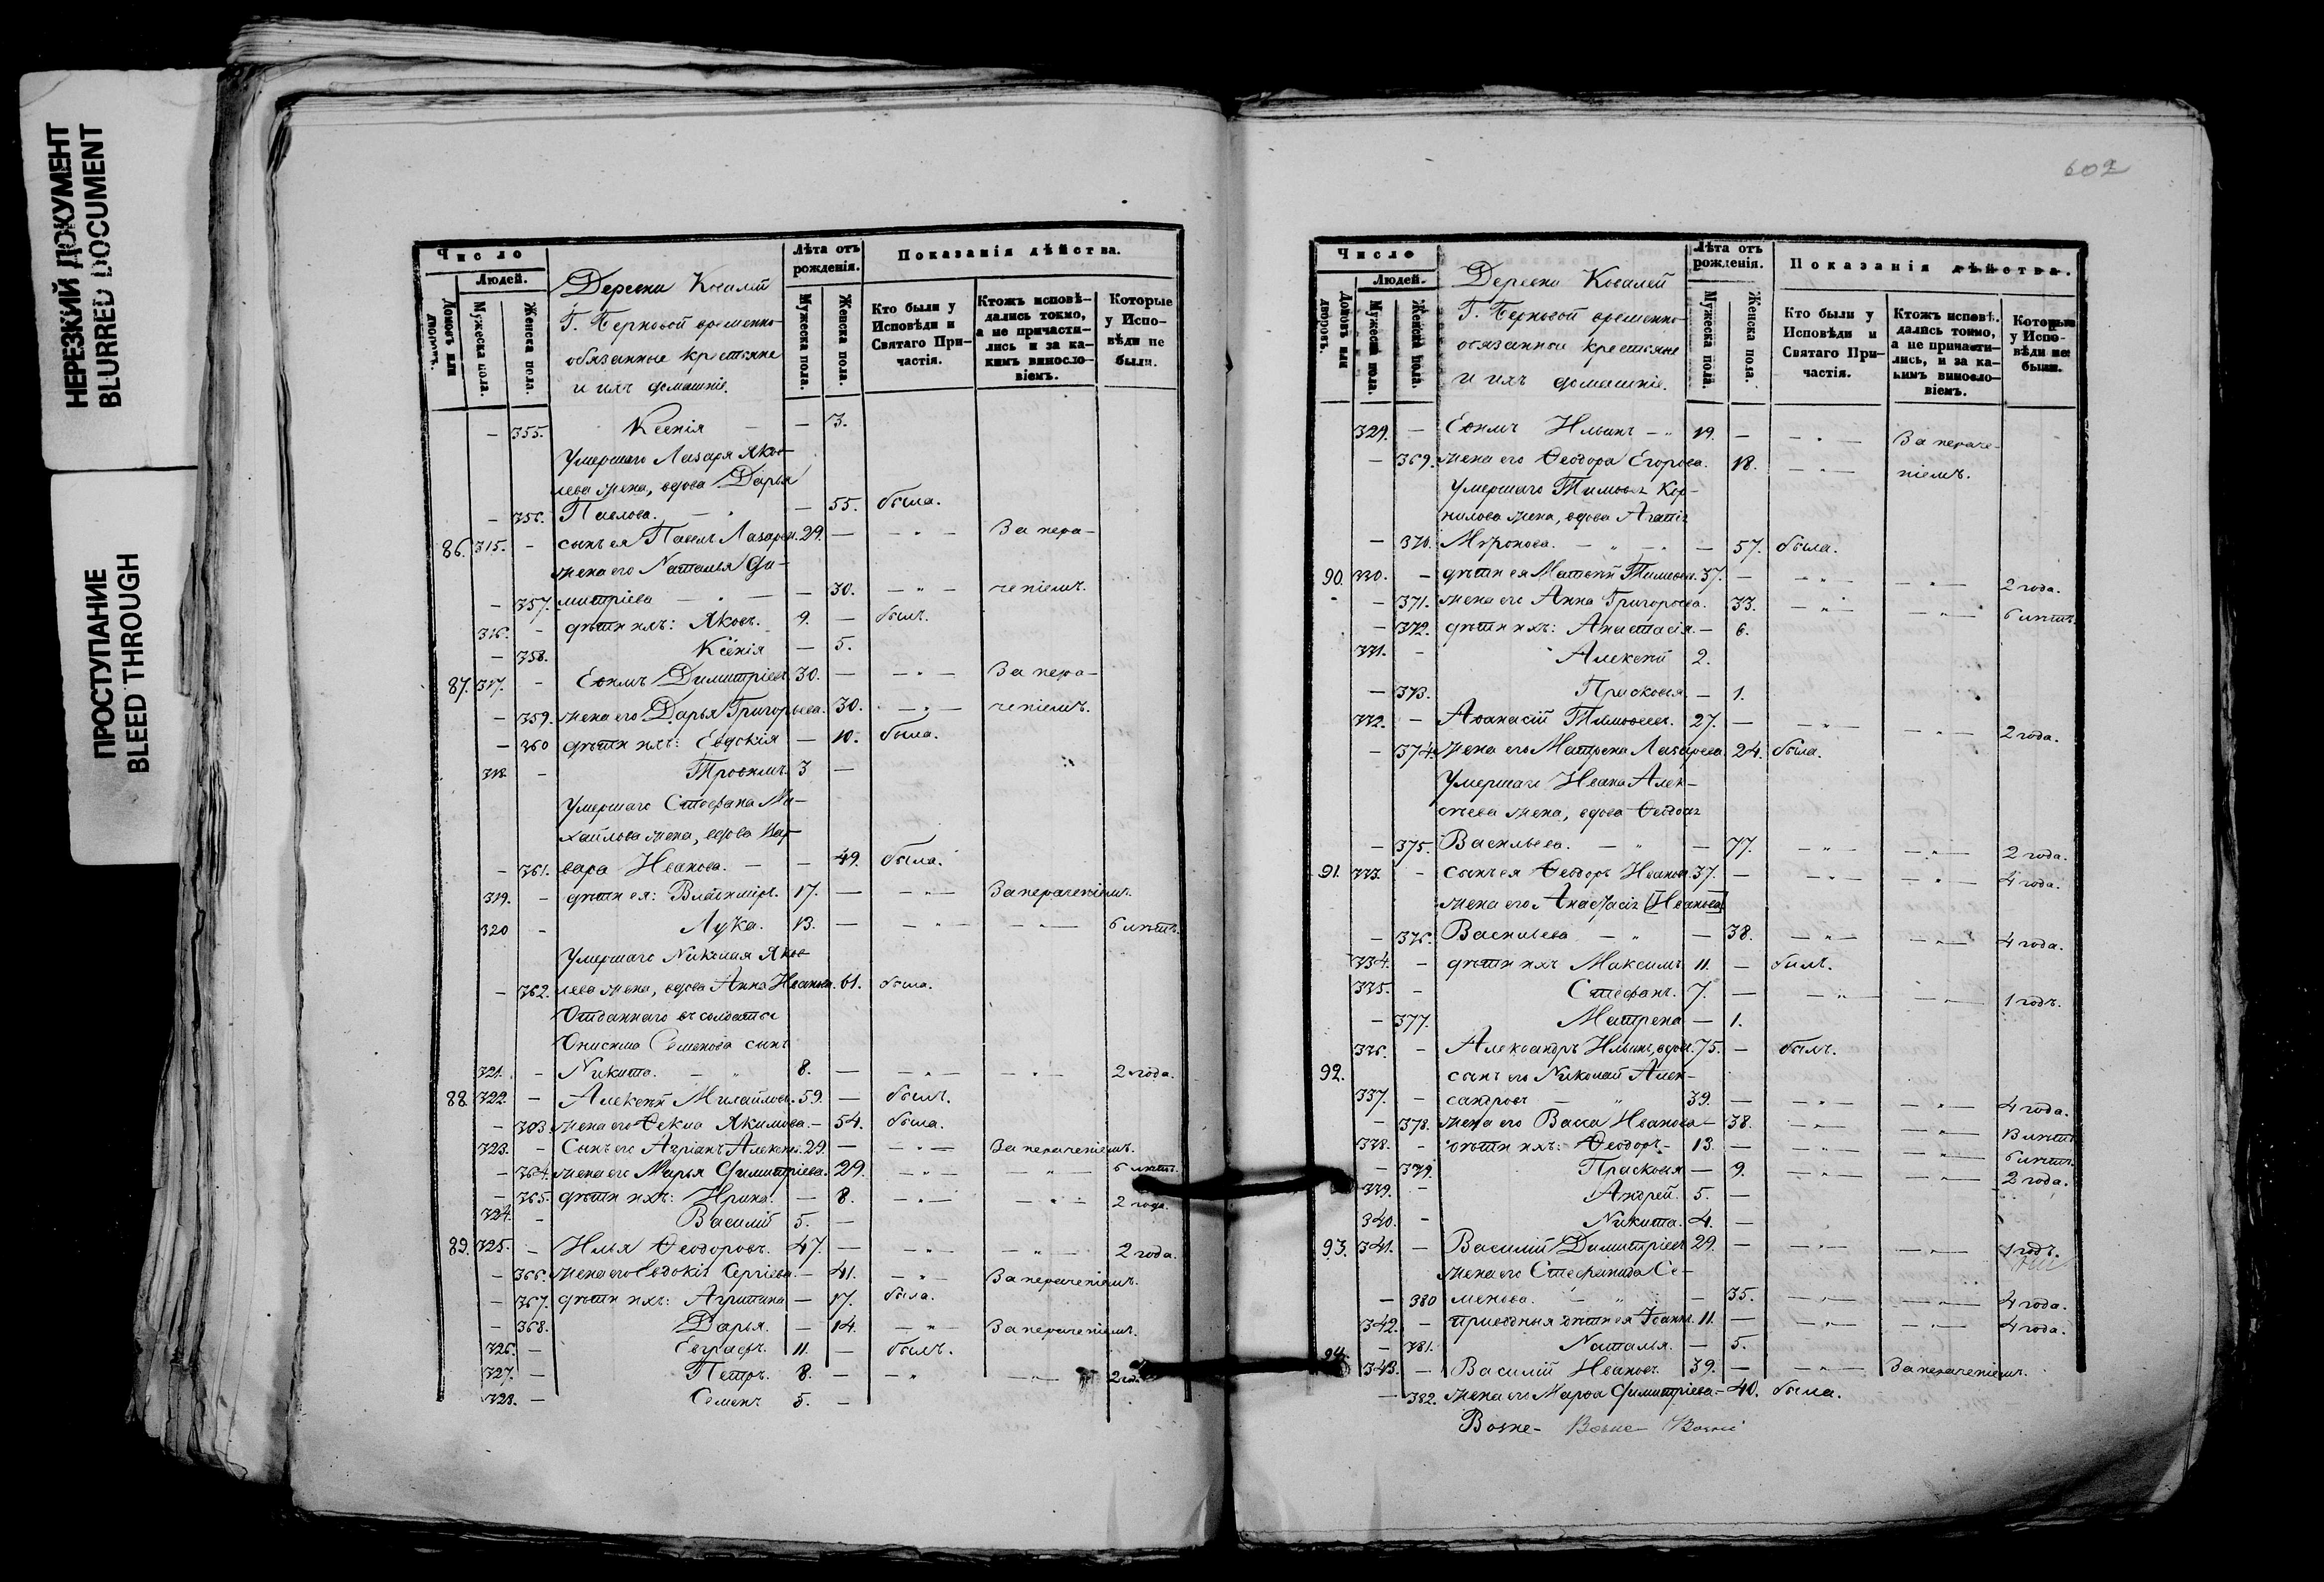 НЕРЕЗКИЙ ДОКУМЕНТ
BLURRED DOCUMENT
ПРОСТУПАНИЕ
BLEED THROUGH
Число
Людей.
Домовъ или дворовъ.
Мужеска пола.
Женска пола.
Деревни Ковалей
Г. Перновой временно-
обязанные крестьяне
и ихъ домашніе.
Лѣта отъ рожденія.
Мужеска пола.
Женска пола.
Показанія дѣйства.
Кто были у Исповѣди и Святаго При-частія.
Ктожъ исповѣ-дались токмо, а не причасти-лись и за ка-кимъ винословіемъ.
Которые у Испо-вѣди не были.
— 355. Ксенія — — 3.
Умершаго Лазаря Яков-
лева жена, вдова Дарья
— 356. Павлова. — " — — 55. была.
86. 315. — сынъ ея Павелъ Лазарев. 29. — — " — За нера-
жена его Наталья Ди-
— 357. митріева — " — — 30. — " — ченіемъ.
316. — дѣти ихъ: Яковъ. 9. — былъ.
— 358. Ксенія — 5.
87. 317. — Еѳимъ Димитріевъ 30. — — " — За нера-
— 359. жена его Дарья Григорьева. 30. — " — ченіемъ.
— 360 дѣти ихъ: Евдокія — 10. была.
318. — Трофимъ. 3 —
Умершаго Стефана Ми-
хайлова жена, вдова Вар-
— 361. вара Иванова. — — 49. была.
319. — дѣти ея: Владиміръ. 17. — — " — За нераченіемъ.
320 — Лука. 13. — — " — — " — 6 лѣтъ.
Умершаго Николая Яков-
— 362. лева жена, вдова Анна Иванова. 61. была.
Отданнаго въ солдаты
Онисима Семенова сынъ
321. — Никита. — " 8. — — " — — " — 2 года.
88. 322. — Алексѣй Михайловъ. 59. — былъ.
— 363. жена его Ѳекла Якимова. — 54. была.
323. — Сынъ его Адріанъ Алексѣев. 29. — — " — За нераченіемъ.
— 364. жена его Марья Димитріева. 29. — " — " — 6 лѣтъ.
— 365. дѣти ихъ: Ирина. — 8. — " — — " — 2 года.
324. — Василій 5. —
89. 325. — Илья Ѳеодоровъ. 47. — — " — — " — 2 года.
— 366. жена его Евдокія Сергіева. — 41. — " — За нераченіемъ.
— 367. дѣти ихъ: Агрипина — 17. была.
— 368. Дарья. — 14. — " — За нераченіемъ.
326. — Евграфъ. 11. — былъ.
327. — Петръ. 8. — — " — — " — 2 года.
328. — Семенъ 5. —
602
Число
Людей.
Домовъ или дворовъ.
Мужеска пола.
Женска пола.
Деревни Ковалей
Г. Перновой временно-
обязанные крестьяне
и ихъ домашніе.
Лѣта отъ рожденія.
Мужеска пола.
Женска пола.
Показанія дѣйства.
Кто были у Исповѣди и Святаго При-частія.
Ктожъ исповѣ-дались токмо, а не причасти-лись, и за ка-кимъ винословіемъ.
Которые у Испо-вѣди не были.
329. — Еѳимъ Ильинъ — " 19. — — " — За нераче-
— 369. жена его Ѳеодора Егорова. 18. — " — ніемъ.
Умершаго Тимоѳея Кор-
нилова жена, вдова Агапія
— 370. Миронова. — " — — 57. была.
90. 330. — дѣти ея Матвѣй Тимоѳеев. 37. — — " — — " — 2 года.
— 371. жена его Анна Григорьева. 33. — " — — " — 6 лѣтъ.
— 372. дѣти ихъ: Анастасія. — 6.
331. — Алексѣй 2.
— 373. Прасковья — 1.
332. — Аѳанасій Тимоѳеевъ. 27. — — " — — " — 2 года.
— 374. жена его Матрена Лазарева. 24. была.
Умершаго Ивана Алек-
сѣева жена, вдова Ѳеодосія
— 375. Васильева. — " — 77. — " — — " — 2 года.
91. 333. — сынъ ея Ѳеодоръ Ивановъ. 37. — — " — — " — 4 года.
жена его Анастасія [Иванова]
— 376. Васильева — " — 38. — " — — " — 4 года.
334. — дѣти ихъ Максимъ 11. — былъ.
335. — Стефанъ. 7. — — " — — " — 1 годъ.
— 377. Матрена — 1.
336. — Александръ Ильинъ, вдов. 75. — былъ.
92. сынъ его Николай Алек-
337. — сандровъ — " 39. — — " — — " — 4 года.
— 378. жена его Васса Иванова — 38. — " — — " — 13 лѣтъ.
338. — дѣти ихъ: Ѳеодоръ — 13. — — " — — " — 6 лѣтъ.
— 379. Прасковья — 9. — " — — " — 2 года.
339. — Андрей. 5. —
340. — Никита. 4. —
93. 341. — Василій Димитріевъ 29. — — " — — " — 1 годъ.
жена его Стефанида Се-
— 380 менова. — " — 35. — " — — " — 4 года.
342. — приводныя дѣти ея Іоаннъ. 11. — — " — — " — 4 года.
— 381. Наталья. — 5.
94. 343. — Василій Ивановъ. 39. — — " — За нераченіемъ.
— 382. жена его Марѳа Димитріева — 40. была.